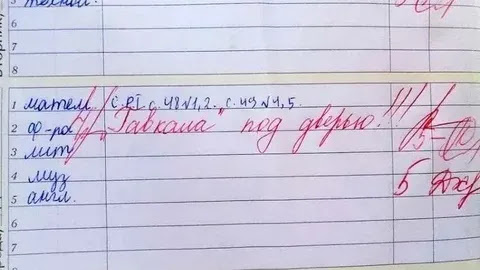 технол.
6
7
8
1 матем С.РТ с.48 №1,2. с.49 №4,5.
2 ф-ра "Гавкала" под дверью!!!
3 лит 5
4 муз
5 англ. 5
6
7
8